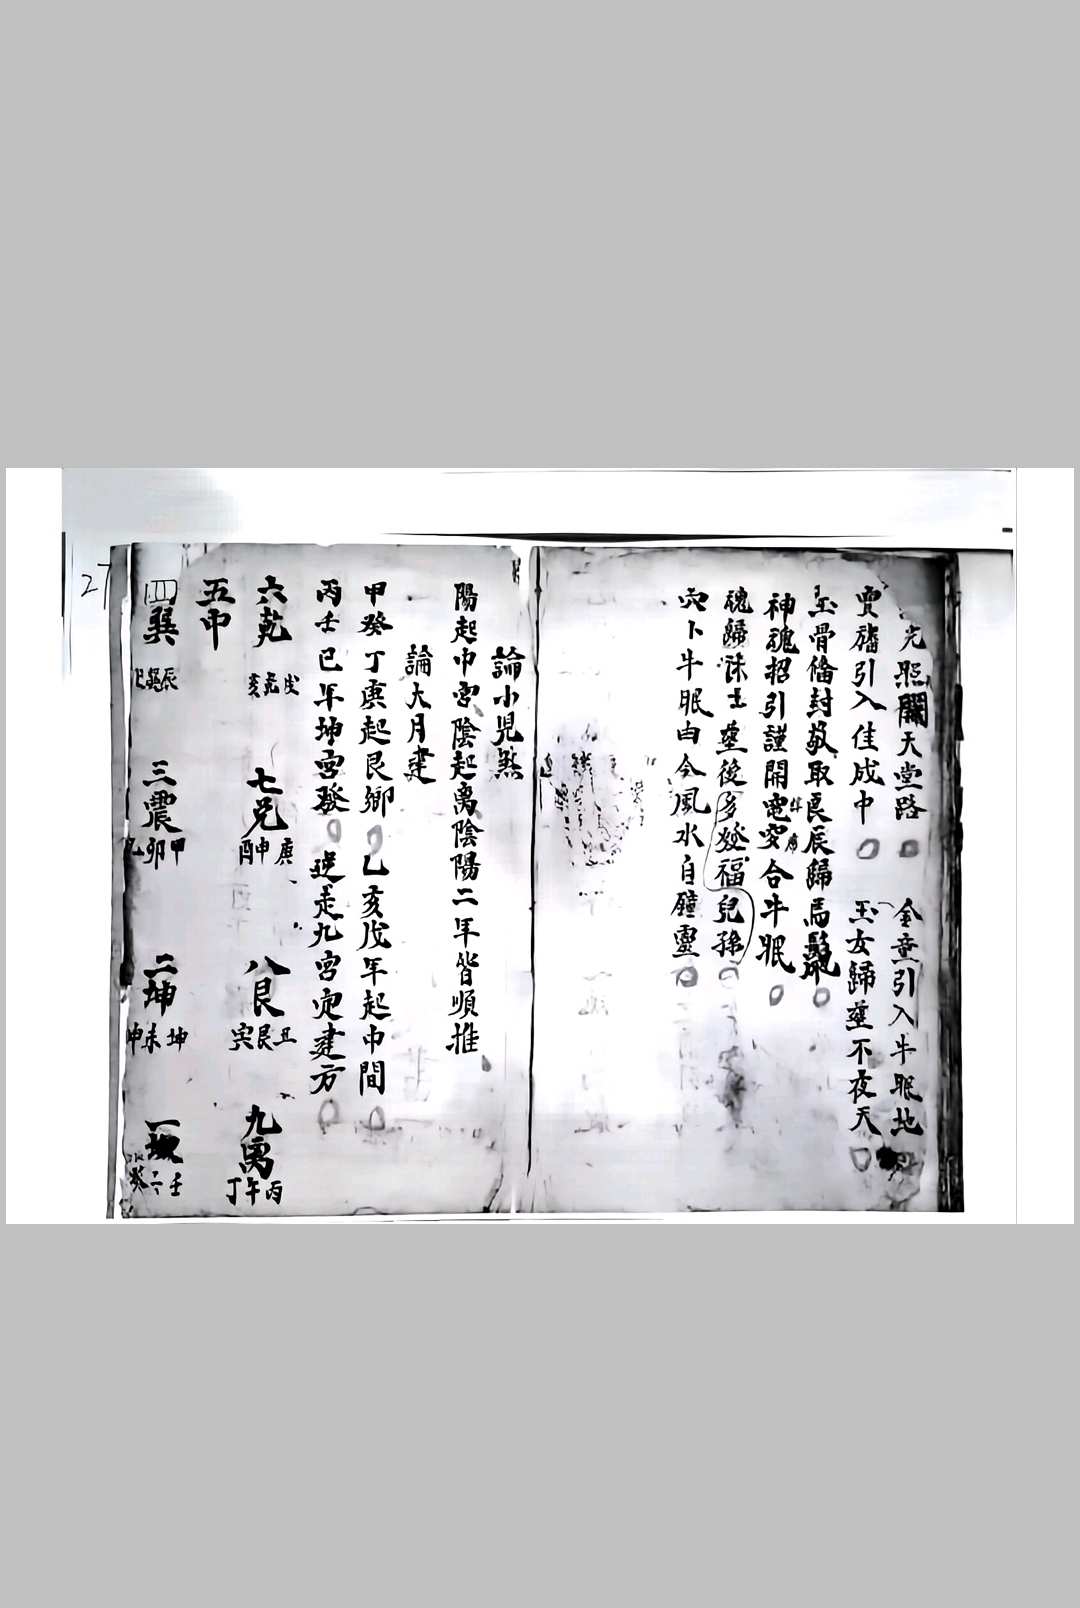 光照開天堂路 金童引入牛眠地
賈旛引入佳成中 玉女歸塋不夜天
玉骨脩封敬取良辰歸馬鬣
神魂招引謹開電穸合牛眠
魂歸 士塋後多發福兒孫
穴卜牛眠由今風水自鐘靈
論小児煞
陽起中宮陰起离陰陽二年皆順推
論大月建
甲癸丁庚起艮鄉 乙亥戊年起中間
丙壬巳年坤宮發 逆走九宮定建方
六乾 戌乾亥 七兑 庚申酉 八艮 丑艮寅 九离 丙午丁
五中
四巽 辰巽巳 三震 甲卯乙 二坤 坤未申 一 壬 癸
27